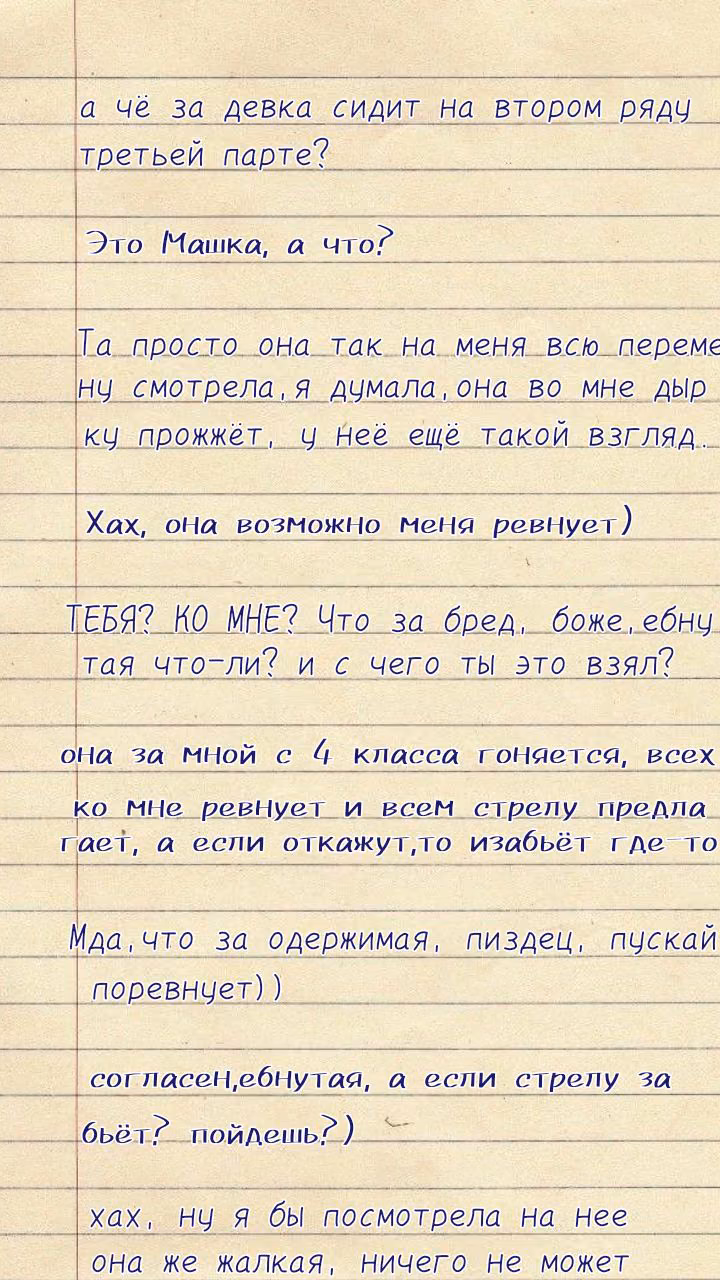 а чё за девка сидит на втором ряду
третьей парте?
Это Машка, а что?
Та просто она так на меня всю переме
ну смотрела,я думала,она во мне дыр
ку прожжёт, у неё ещё такой взгляд.
Хах, она возможно меня ревнует)
ТЕБЯ? КО МНЕ? Что за бред, боже,ебну
тая что-ли? и с чего ты это взял?
она за мной с 4 класса гоняется, всех
ко мне ревнует и всем стрелу предла
гает, а если откажут,то изабьёт где-то
Мда,что за одержимая, пиздец, пускай
поревнует))
согласен,ебнутая, а если стрелу за
бьёт? пойдешь?)
хах, ну я бы посмотрела на нее
она же жалкая, ничего не может